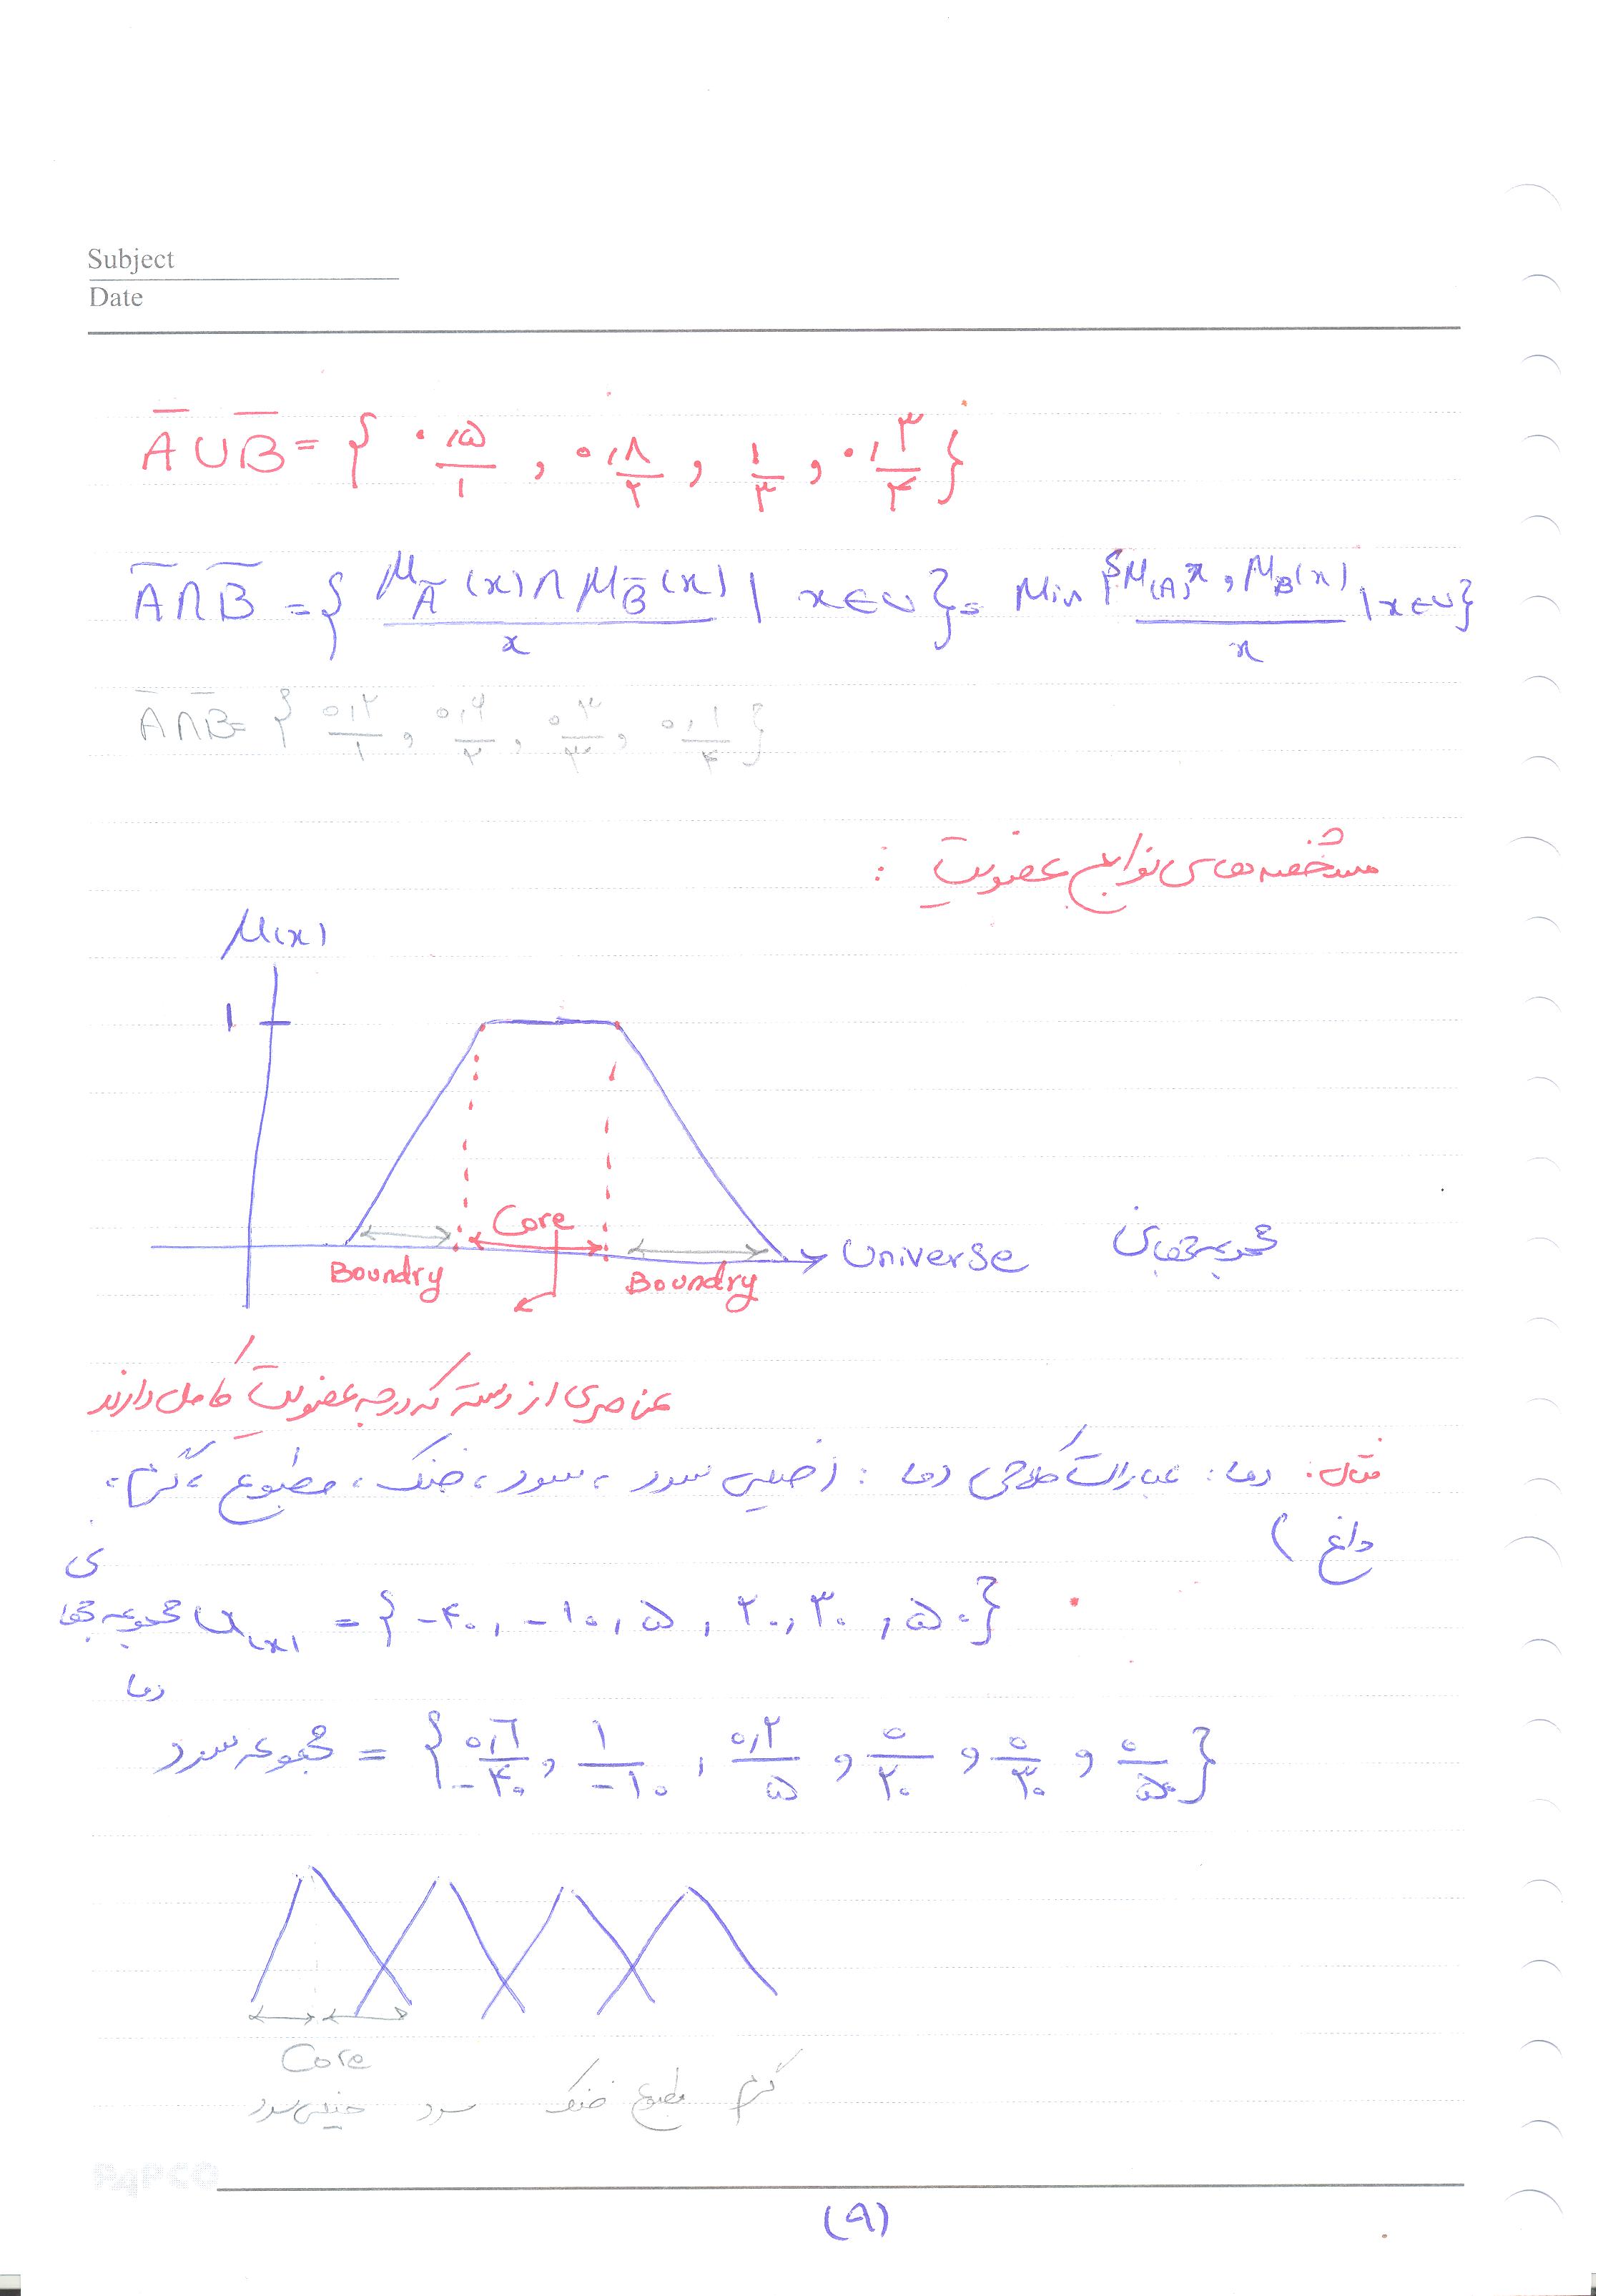 Subject
Date
A̅ ∪ B̅ = { ۰,۵/۱ , ۰,۸/۲ , ۱/۳ , ۰,۳/۴ }
A̅ ∩ B̅ = { μA̅(x) ∩ μB̅(x) / x | x ∈ U } = Min { μ(A)x , μB(x) / x | x ∈ U }
A̅ ∩ B̅ = { ۰,۲/۱ , ۰,۶/۲ , ۰,۳/۳ , ۰,۱/۴ }
مشخصه های توابع عضویت :
μ(x)
1
Core
Universe
مجموعه جهانی
Boundry
Boundry
عناصری از دسته که درجه عضویت کامل دارند
مثال: دما: عبارات کلامی دما : (خیلی سرد ، سرد ، خنک ، مطبوع ، گرم ،
داغ )
مجموعه جهانی دما U(x) = { -۴۰ , -۱۰ , ۵ , ۲۰ , ۳۰ , ۵۰ }
مجموعه سرد = { ۰,۶/-۴۰ , ۱/-۱۰ , ۰,۲/۵ , ۰/۲۰ , ۰/۳۰ , ۰/۵۰ }
Core
خیلی سرد سرد خنک مطبوع گرم
PAPCO
(۹)